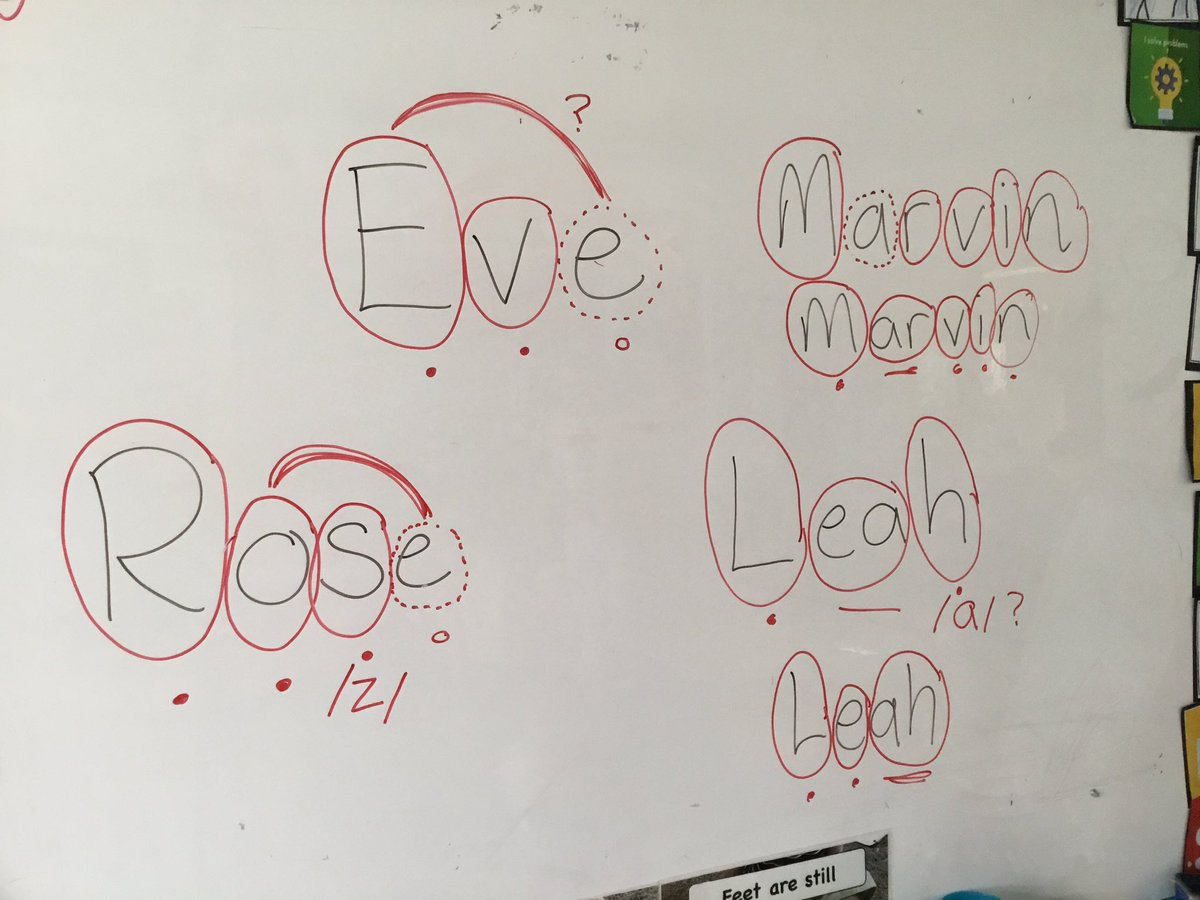 ?
Eve
Rose
/z/
Marvin
Marvin
Leah
/a/?
Leah
I solve problems
Feet are still